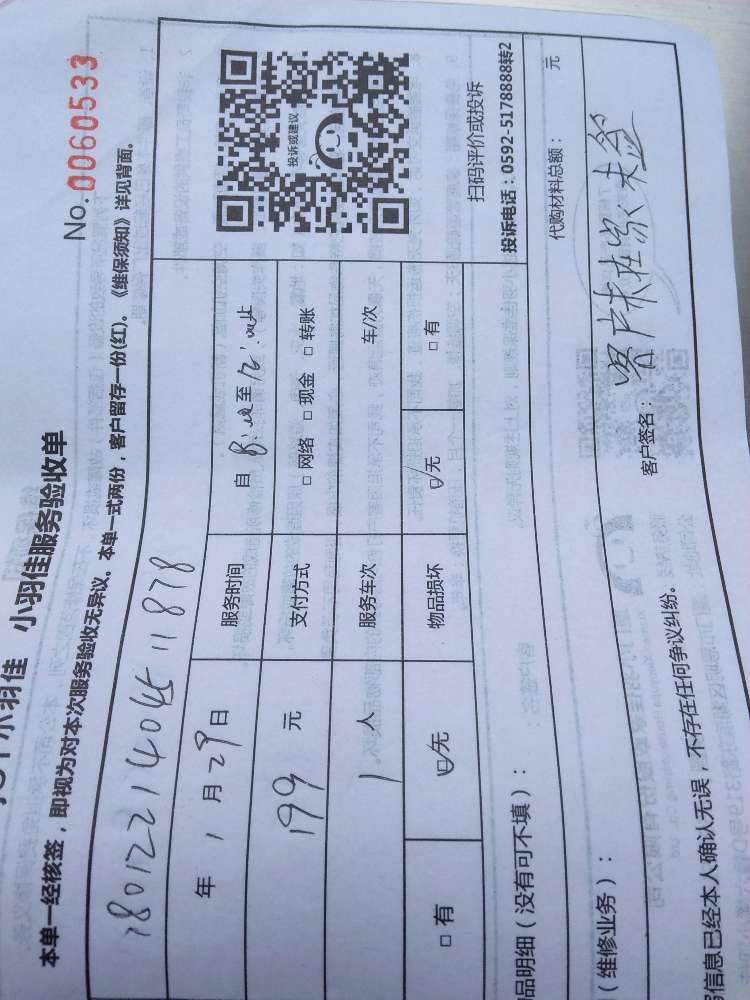 小羽佳 小羽佳服务验收单
No.0060533
本单一经核签，即视为对本次服务验收无异议。本单一式两份，客户留存一份(红)。《维保须知》详见背面。
年 1 月 29 日 服务时间 自 至
199 元 支付方式 □ 网络 □ 现金 □ 转账
1 人 服务车次 车/次
□ 有 ☑ 无 物品损坏 ☑ 无 □ 有
投诉或建议
扫码评价或投诉
投诉电话：0592-5178888转2
品明细（没有可不填）：
代购材料总额： 元
（维修业务）：
信息已经本人确认无误，不存在任何争议纠纷。 客户签名： 客户未在家未签